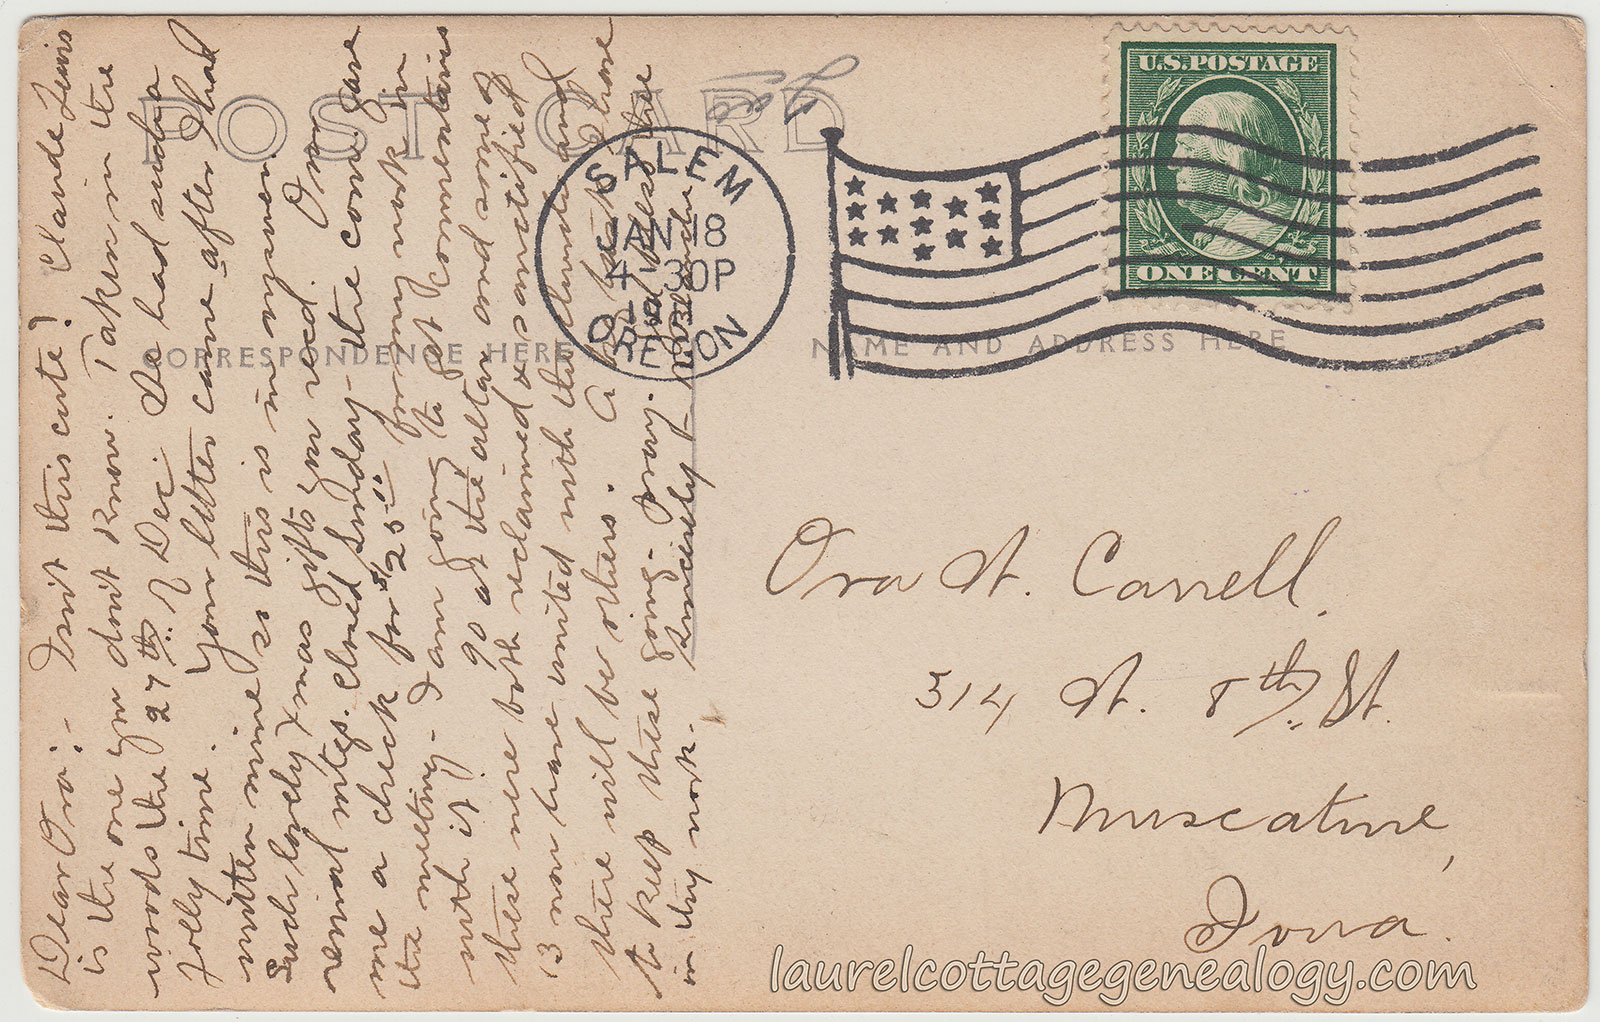 POST CARD
CORRESPONDENCE HERE
NAME AND ADDRESS HERE
U.S. POSTAGE
ONE CENT
SALEM
JAN 18
4-30P
OREGON
Dear Ora:- Isn't this cute? Claude Lewis
is the one you don't know. Taken in the
woods the 27th of Dec. We had such a
jolly time. Your letter came after I had
written mine so this is in answer.
Such lovely Xmas gifts you recd. Our
revival mtgs. closed Sunday- the comi gave
me a check for $25.00 for my work in
the meeting- I am going to get commentaris
with it. 90 at the altar and some of
these were both reclaimed & sanctified
13 now have united with the church and
there will be others. have
to keep these going- pray. the
in thy work. Sincerely
Ora St. Carrell.
514 W. 8th. St.
Muscatine,
Iowa.
laurelcottagegenealogy.com